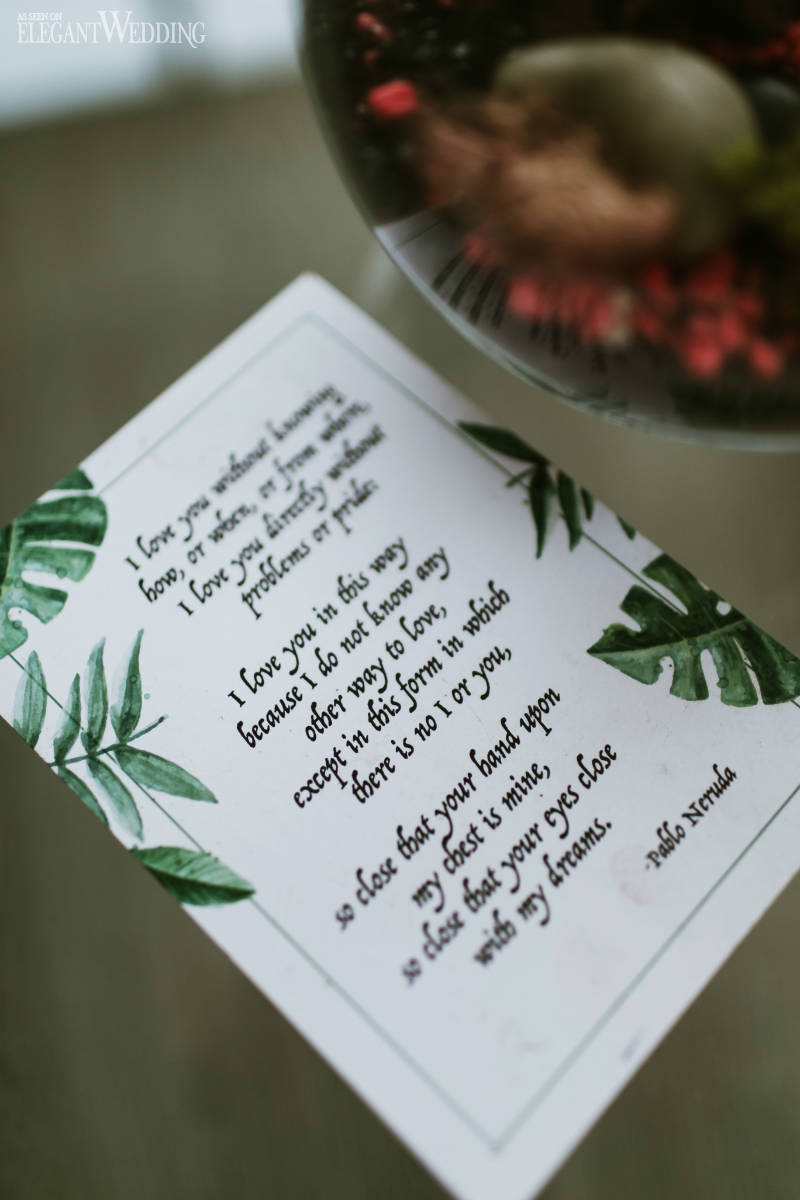 AS SEEN ON
ELEGANTWEDDING
I love you without knowing
how, or when, or from where,
I love you directly without
problems or pride:
I love you in this way
because I do not know any
other way to love,
except in this form in which
there is no I or you,
so close that your hand upon
my chest is mine,
so close that your eyes close
with my dreams.
-Pablo Neruda